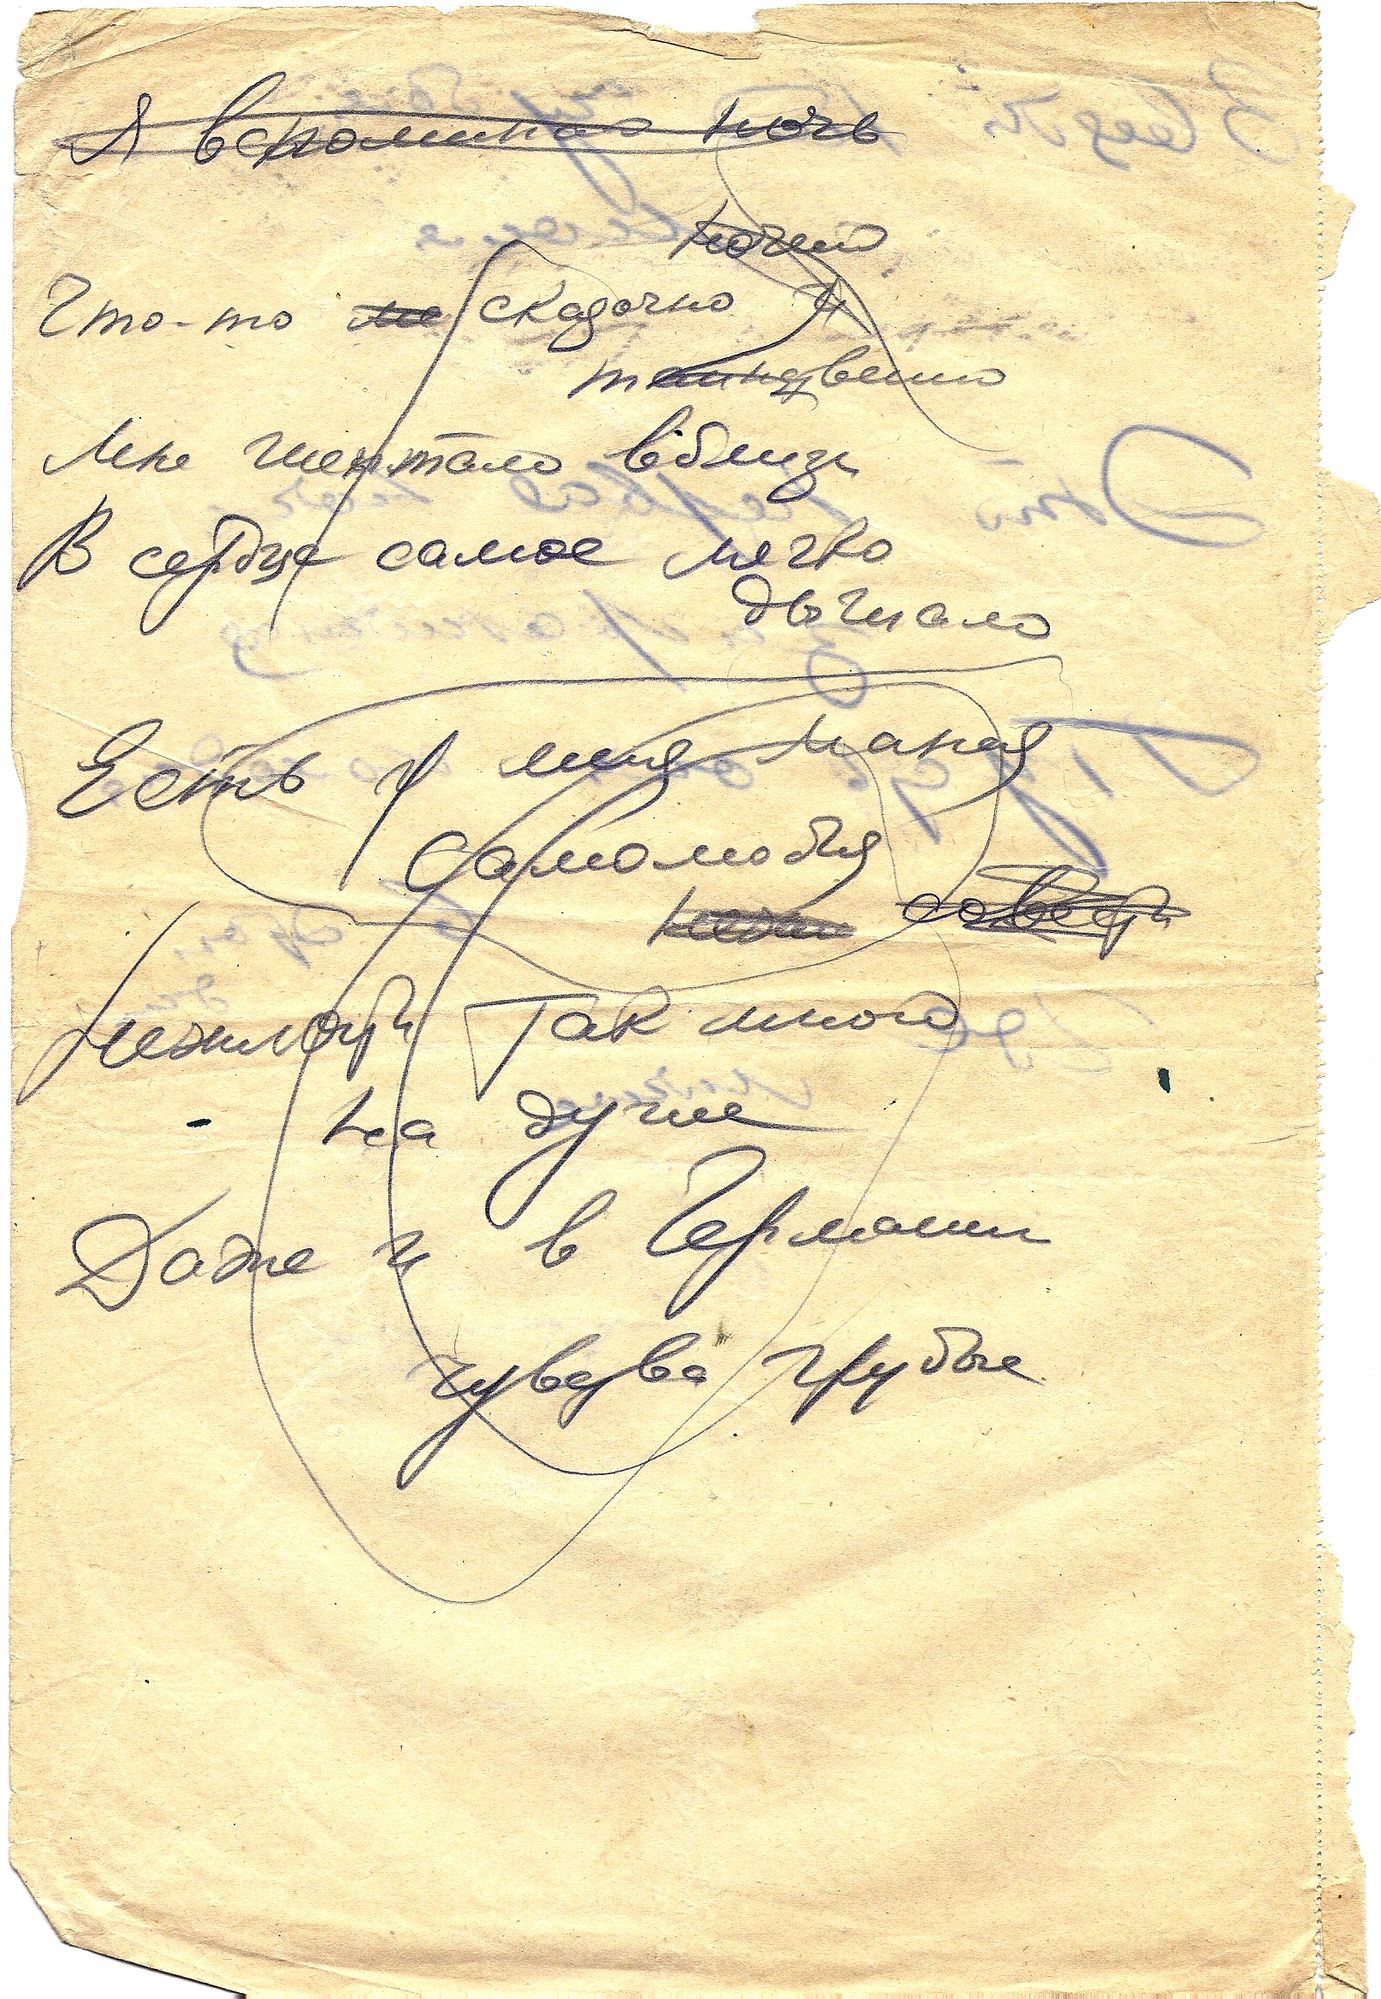 Я вспоминаю ночь
ночью
Что-то не сказочно и
таинственно
Мне шептало вблизи
В сердце самое мягко
дышало
Есть у меня мания
самолюбия
Нежности так много
на душе
Даже и в Германии
чувства грубые